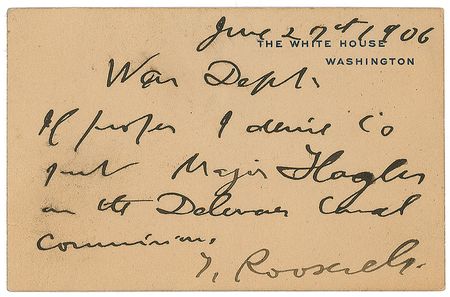 June 27th 1906
THE WHITE HOUSE
WASHINGTON
War Dept.
If proper I desire to
put Major Flagler
on the Delaware Canal
Commission.
T. Roosevelt.